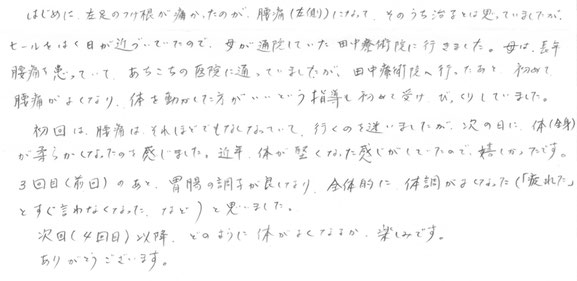 はじめに、左足のつけ根が痛かったのが、腰痛(左側)になって、そのうち治るとは思っていましたが、
セールもはく日が近づいていたので、母が通院していた田中療術院に行きました。母は、長年
腰痛を患っていて、あちこちの医院に通っていましたが、田中療術院へ行ったあと、初めて
腰痛がよくなり、体を動かした方がいいという指導も初めて受け、びっくりしていました。
初回は、腰痛は、それほどでもなくなっていて、行くのを迷いましたが、次の日に、体(全身)
が柔らかくなったのを感じました。近年、体が堅くなった感じがしていたので、嬉しかったです。
3回目(前回)のあと、胃腸の調子が良くなり、全体的に、体調がよくなった(「疲れた」
とすぐ言わなくなった、など)と思いました。
次回(4回目)以降、どのように体がよくなるか、楽しみです。
ありがとうございます。